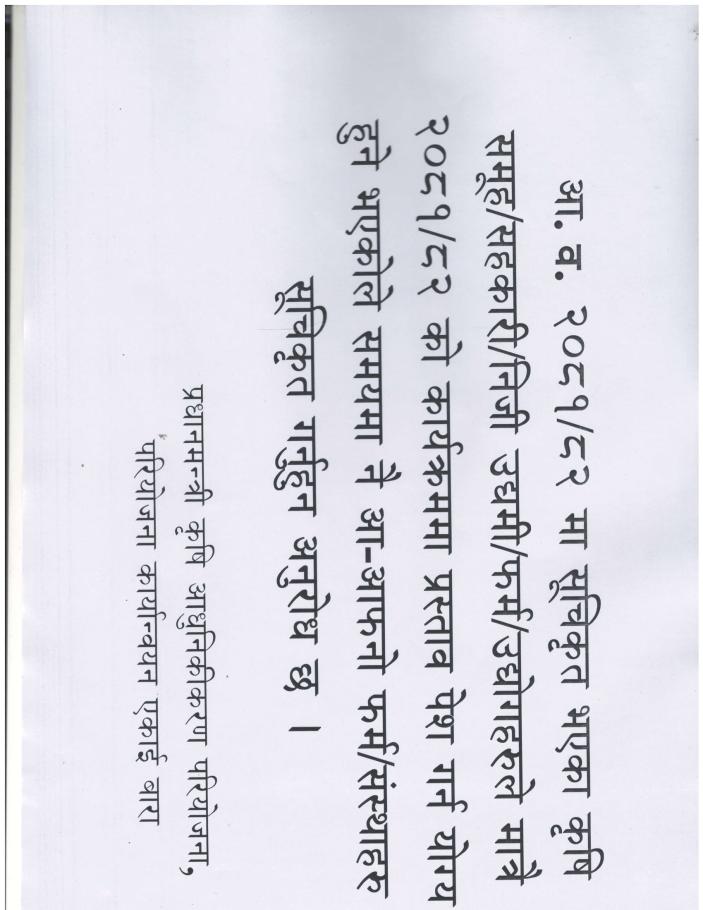 आ. व. २०८१/८२ मा सूचिकृत भएका कृषि
समूह/सहकारी/निजी उद्यमी/फर्म/उद्योगहरुले मात्रै
२०८१/८२ को कार्यक्रममा प्रस्ताव पेश गर्न योग्य
हुने भएकोले समयमा नै आ-आफनो फर्म/संस्थाहरु
सूचिकृत गर्नुहुन अनुरोध छ ।
प्रधानमन्त्री कृषि आधुनिकीकरण परियोजना,
परियोजना कार्यान्वयन एकाई बारा